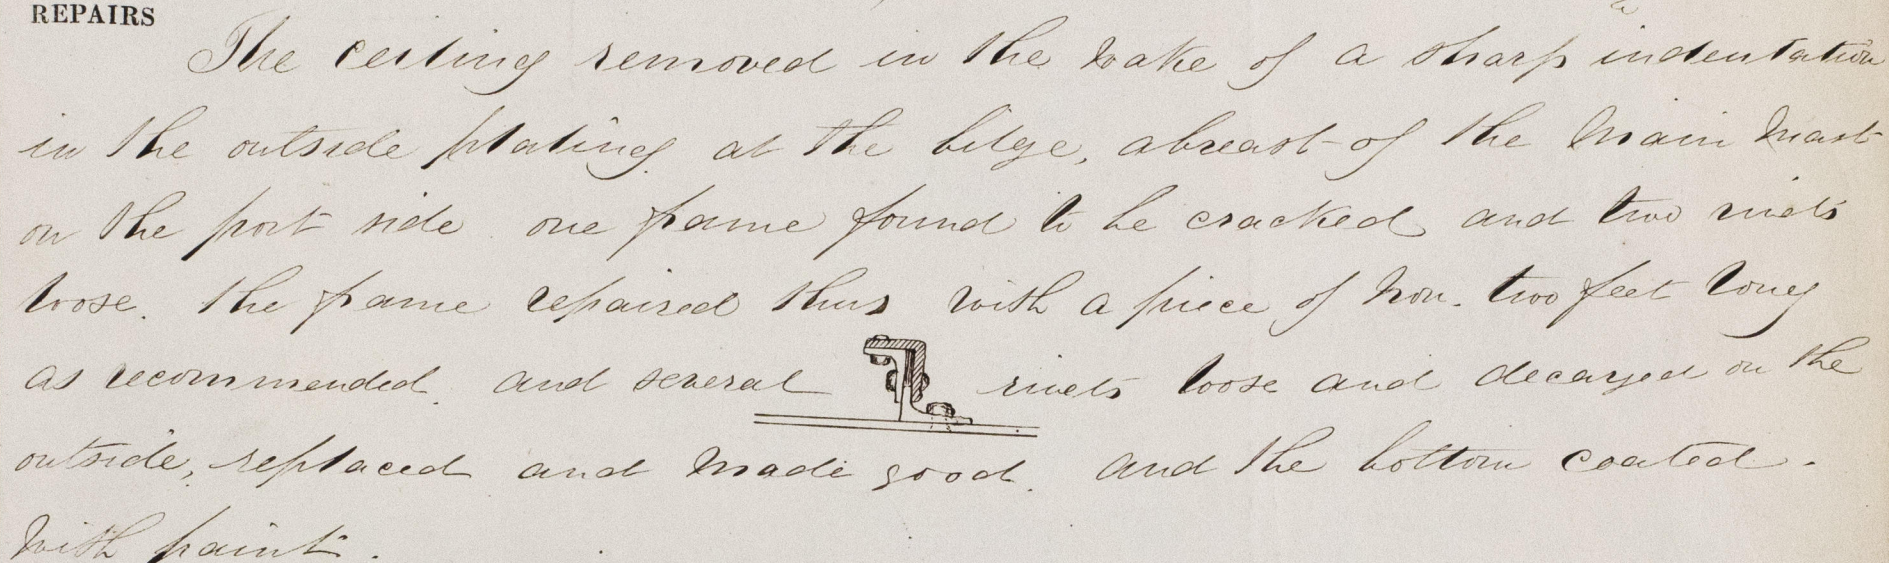 REPAIRS
The ceiling removed in the wake of a sharp indentation
in the outside plating at the bilge, abreast of the Main Mast
on the port side one frame found to be cracked and two rivets
loose. the frame repaired thus with a piece of Iron. two feet long
as recommended. and several rivets loose and decayed on the
outside, replaced and made good. and the bottom coated.
With paint.